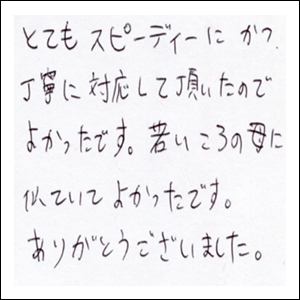 とてもスピーディーにかつ
丁寧に対応して頂いたので
よかったです。若いころの母に
似ていてよかったです。
ありがとうございました。